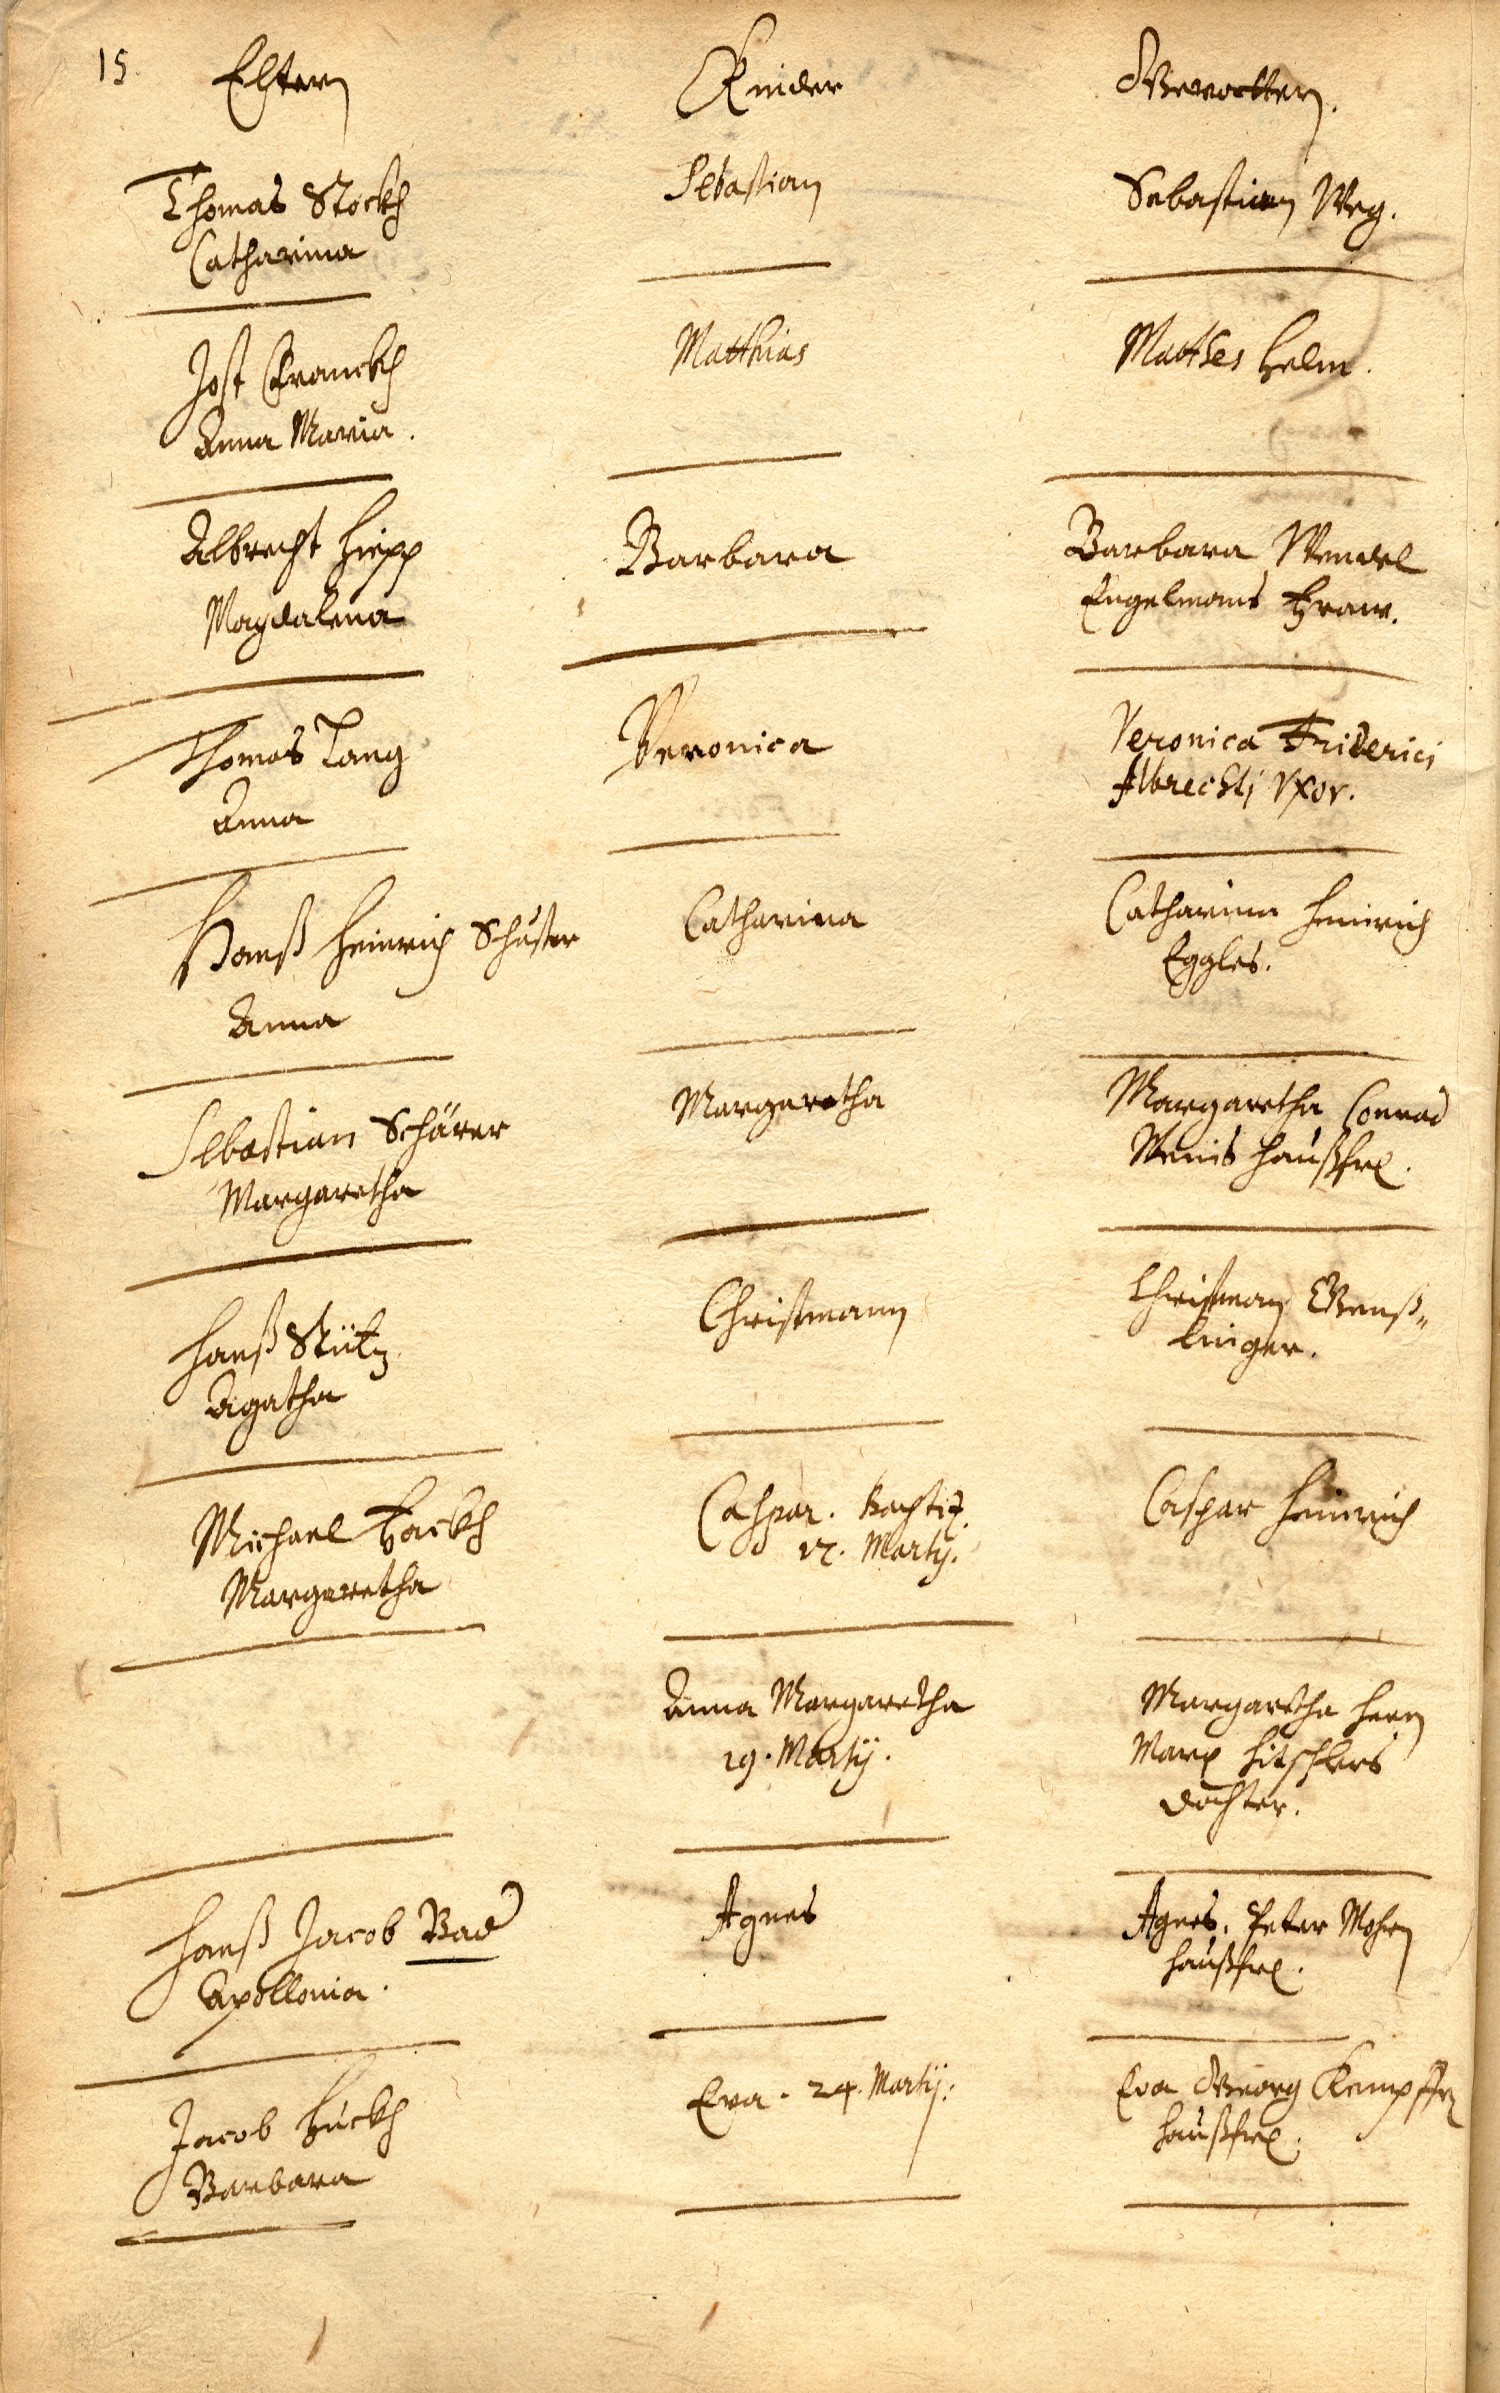 15.
Eltern
Kinder
Gevattern.
Thomas Stöckh
Catharina
Sebastian
Sebastian Weg.
Jost Franckh
Anna Maria.
Matthias
Matthes Helm.
Albrecht Hiepp
Magdalena
Barbara
Barbara Wendel
Engelmans Fraw.
Thomas Lang
Anna
Veronica
Veronica Friderici
Albrechtj Vxor.
Hanß Heinrich Schuster
Anna
Catharina
Catharina Heinrich
Eggles.
Sebastian Schärer
Margaretha
Margaretha
Margaretha Conrad
Wenis Haußfr.
Hanß Stütz
Agatha
Christmann
Christman Genß„
linger.
Michael Hackh
Margaretha
Caspar. Baptiz.
17. Martij.
Caspar Heinrich
Anna Margaretha
19. Martij.
Margaretha Herrn
Marx Hitschlers
dochter.
Hanß Jacob Bad
Apollonia.
Agnes
Agnes. Peter Mohrn
haußfr.
Jacob Huckh
Barbara
Eva. 24. Martij.
Eva Georg Kempffen
haußfr.